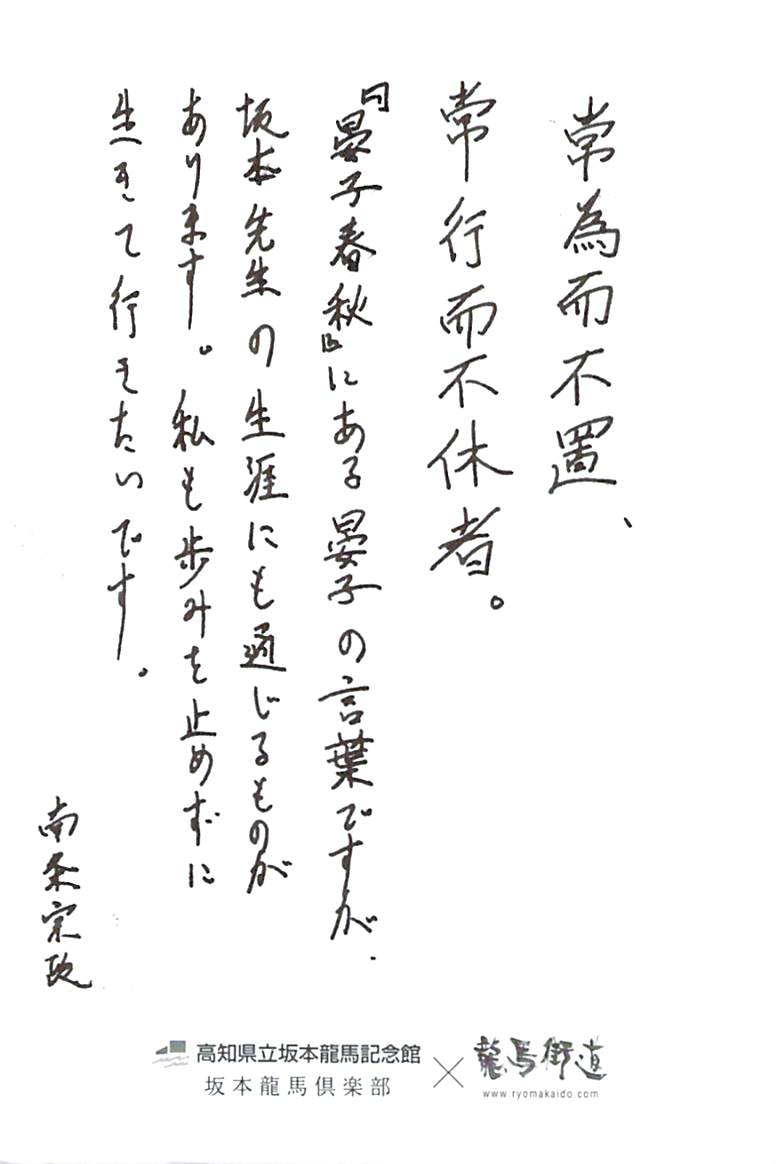 常為而不置、
常行而不休者。
『晏子春秋』にある晏子の言葉ですが、
坂本先生の生涯にも通じるものが
あります。私も歩みを止めずに
生きて行きたいです。
南条宗政
高知県立坂本龍馬記念館
坂本龍馬倶楽部
×
龍馬街道
www.ryomakaido.com